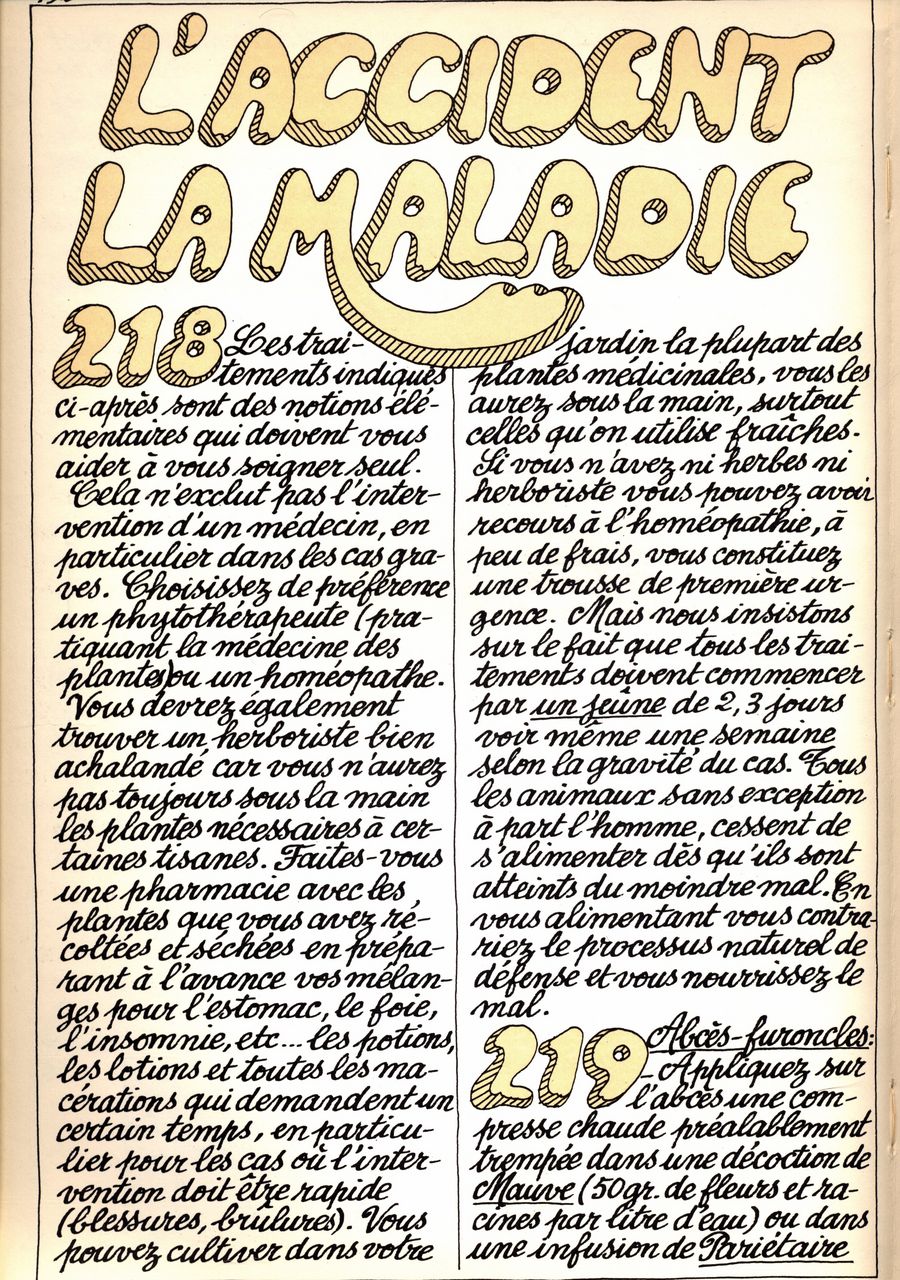 L'ACCIDENT
LA MALADIE
218 Les trai-
tements indiqués
ci-après sont des notions élé-
mentaires qui doivent vous
aider à vous soigner seul.
Cela n'exclut pas l'inter-
vention d'un médecin, en
particulier dans les cas gra-
ves. Choisissez de préférence
un phytothérapeute (pra-
tiquant la médecine des
plantes) ou un homéopathe.
Vous devrez également
trouver un herboriste bien
achalandé car vous n'aurez
pas toujours sous la main
les plantes nécessaires à cer-
taines tisanes. Faites-vous
une pharmacie avec les
plantes que vous avez ré-
coltées et séchées en prépa-
rant à l'avance vos mélan-
ges pour l'estomac, le foie,
l'insomnie, etc... les potions,
les lotions et toutes les ma-
cérations qui demandent un
certain temps, en particu-
lier pour les cas où l'inter-
vention doit être rapide
(blessures, brûlures). Vous
pouvez cultiver dans votre
jardin la plupart des
plantes médicinales, vous les
aurez sous la main, surtout
celles qu'on utilise fraîches.
Si vous n'avez ni herbes ni
herboriste vous pouvez avoir
recours à l'homéopathie, à
peu de frais, vous constituez
une trousse de première ur-
gence. Mais nous insistons
sur le fait que tous les trai-
tements doivent commencer
par un jeûne de 2, 3 jours
voir même une semaine
selon la gravité du cas. Tous
les animaux sans exception
à part l'homme, cessent de
s'alimenter dès qu'ils sont
atteints du moindre mal. En
vous alimentant vous contra-
riez le processus naturel de
défense et vous nourrissez le
mal.
219 Abcès-furoncles:
- Appliquez sur
l'abcès une com-
presse chaude préalablement
trempée dans une décoction de
Mauve (50gr. de fleurs et ra-
cines par litre d'eau) ou dans
une infusion de Pariétaire